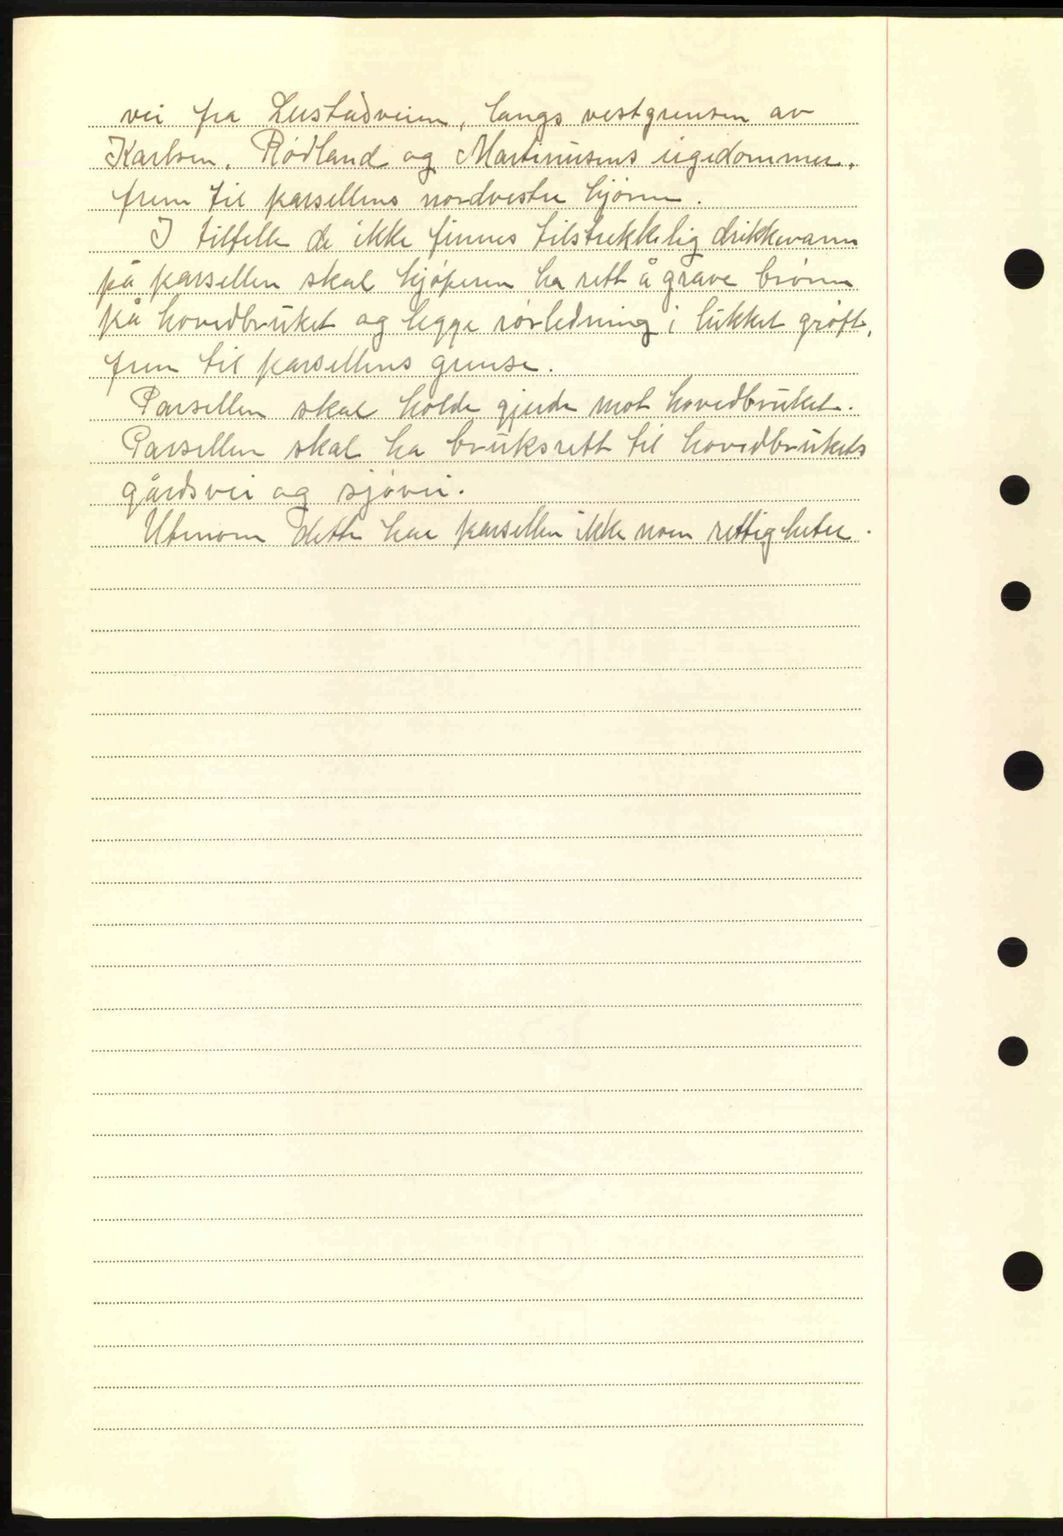 vei fra Lustadveien, langs vestgrensen av
Karlsen, Rødland og Martinusens eigedommer,
frem til parsellens nordvestre hjørne.
I tilfelle de ikke finnes tilstrekkelig drikkevann
på parsellen skal kjøperen ha rett å grave brønn
på hovedbruket og legge rørledning i lukket grøft,
frem til parsellens grense.
Parsellen skal holde gjerde mot hovedbruket.
Parsellen skal ha bruksrett til hovedbrukets
gårdsvei og sjøvei.
Utenom dette har parsellen ikke noen rettigheter.